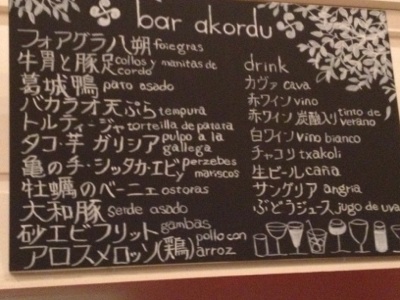 bar akordu
フォアグラ八朔 foiegras
牛胃と豚足 collos y manitas de cordo
葛城鴨 pato asado
バカラオ天ぷら tempura
トルティージャ torteilla de patata
タコ・芋 ガリシア pulpo a la gallega
亀の手・シッタカ・エビ perzebes y mariscos
牡蠣のベーニェ ostoras
大和豚 serde asado
砂エビフリット gambas
アロスメロッソ(鶏) pollo con arroz
drink
カヴァ cava
赤ワイン vino
赤ワイン炭酸入り tinto de verano
白ワイン vino bianco
チャコリ txakoli
生ビール caña
サングリア angria
ぶどうジュース jugo de uva